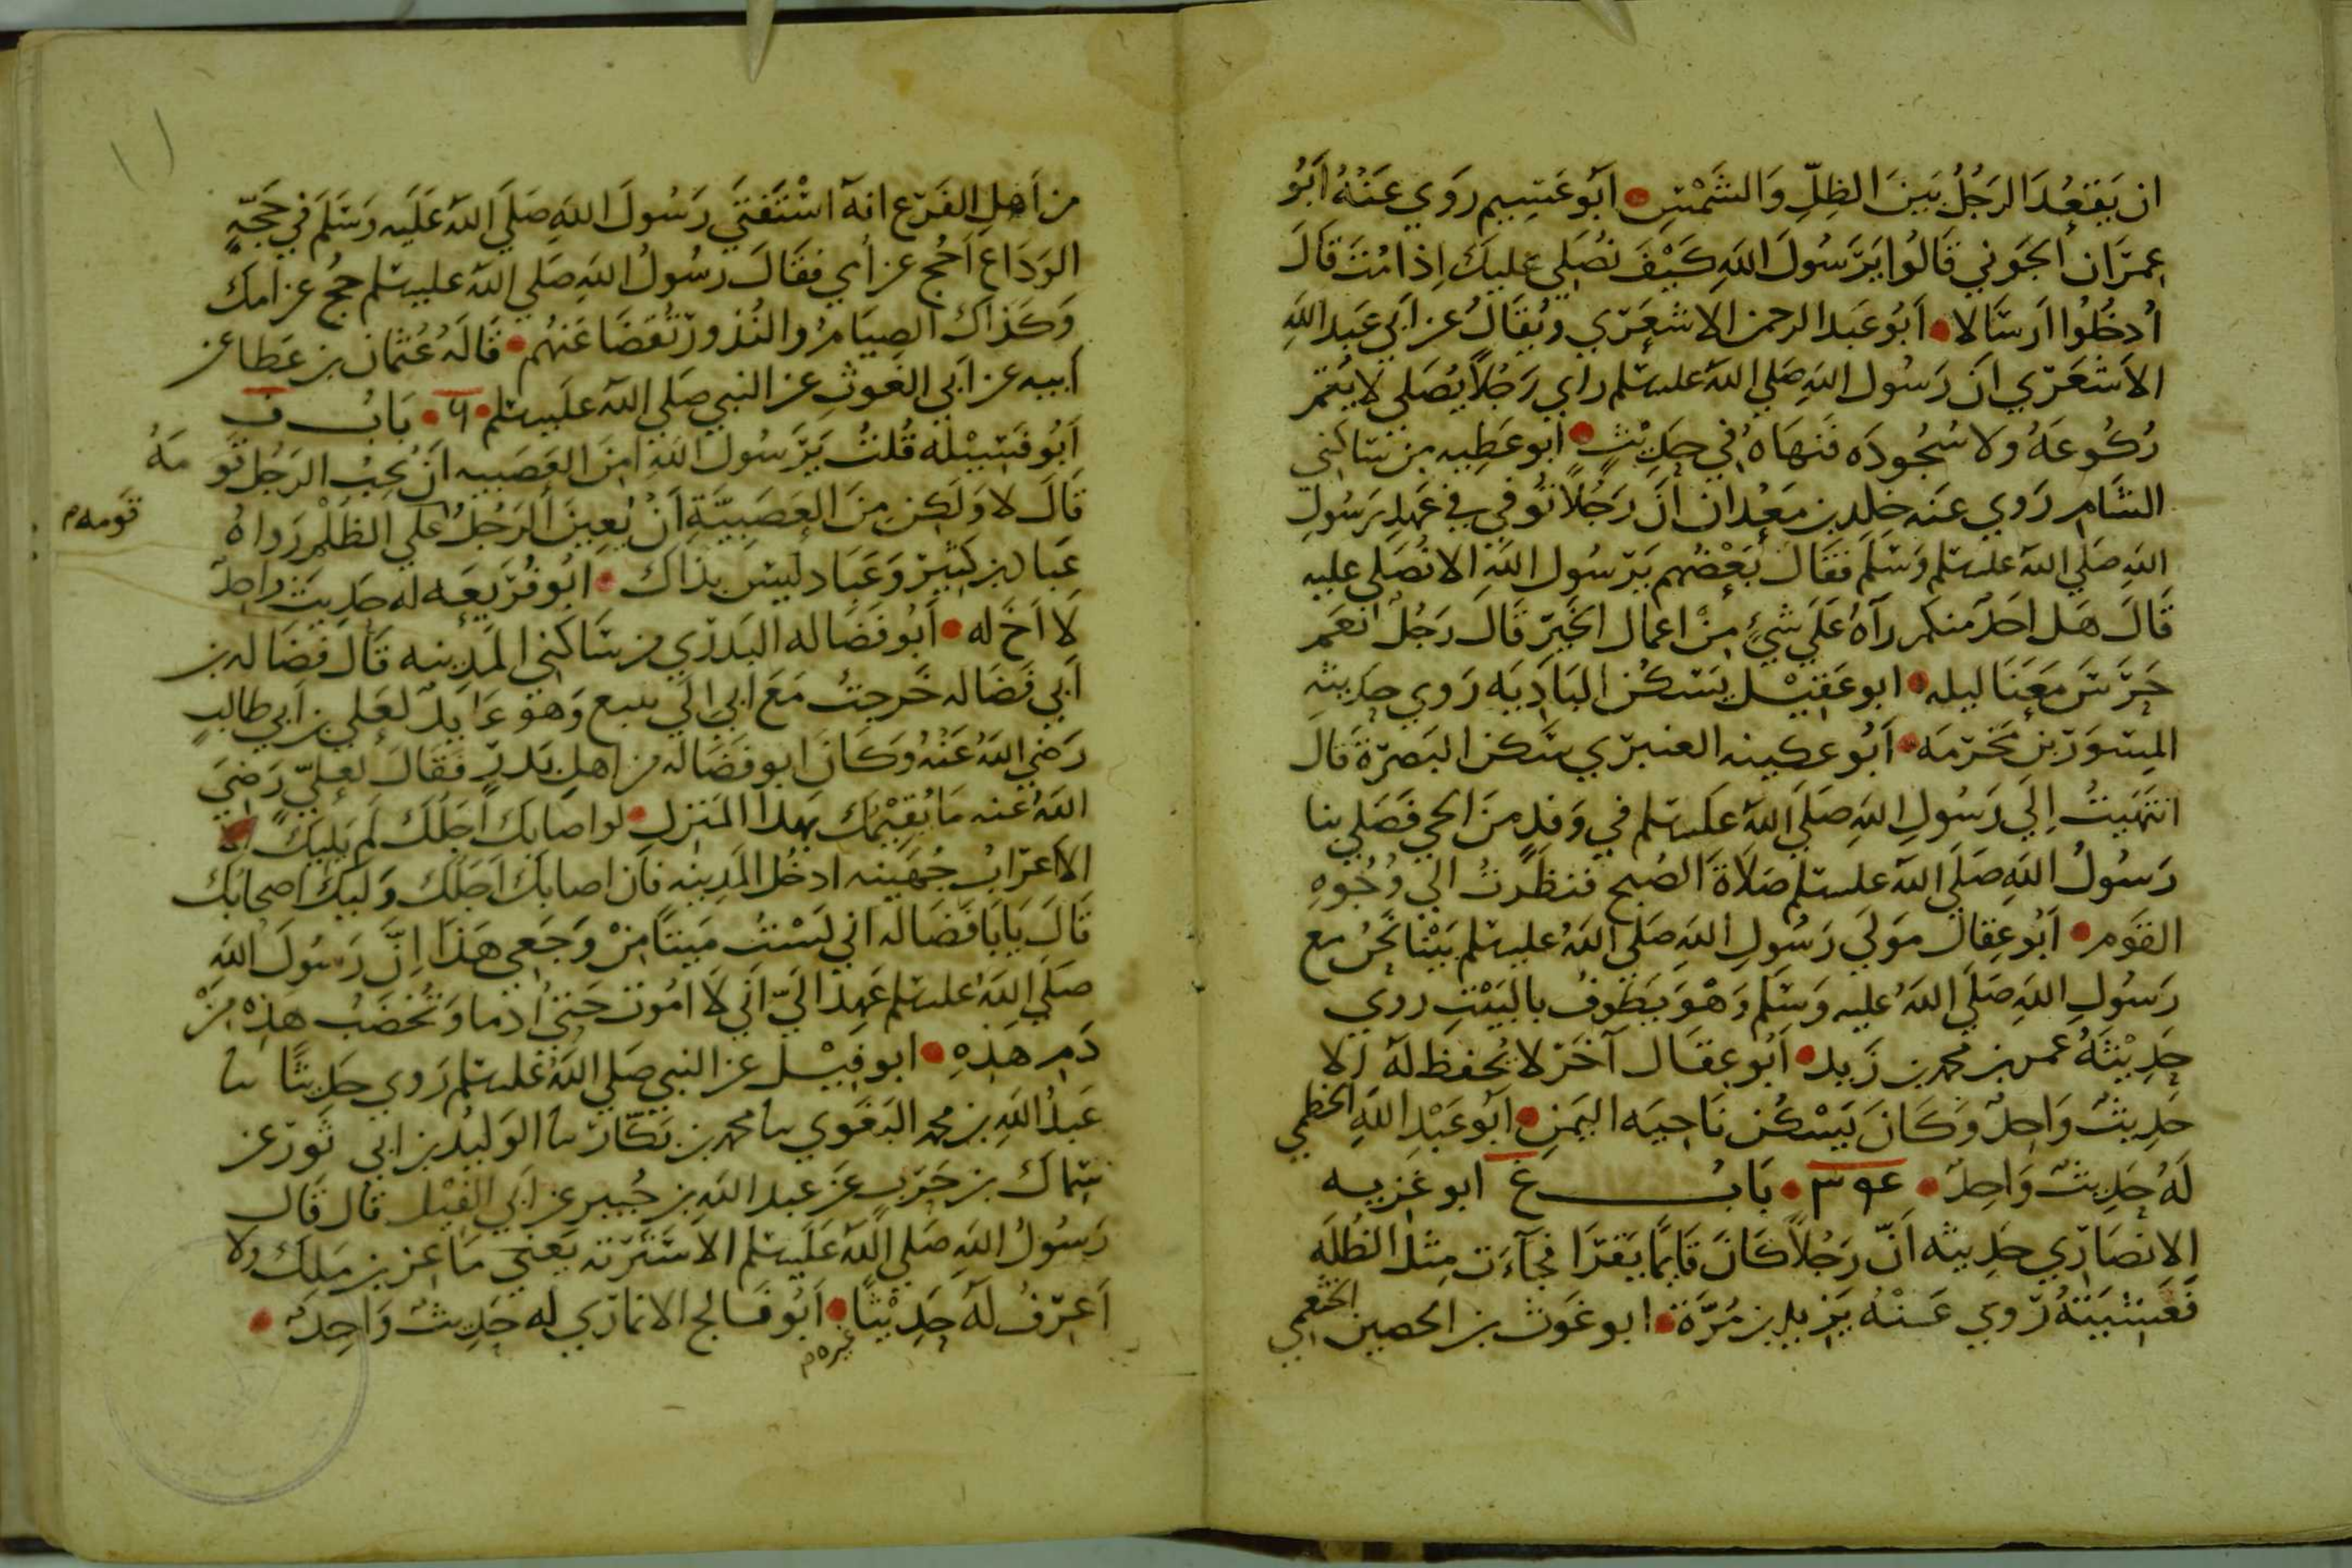 ان يَقعُدَ الرَجُلُ بَينَ الظِلِّ وَالشَمسِ • اَبُو عَسِيم رَوي عَنهُ اَبُو
عِمرَان الجَوني قَالُوا يَرَسُولَ اللهِ كَيْفَ نُصَلِي عليكَ اِذا مُتَ قَالَ
اُدخُلُوا ارَسَالا • اَبُو عَبد الرحمن الاشعَرَي وَيُقَالُ عن ابي عَبد اللهِ
الاَشعَرَي انَ رَسُول اللهِ صَلي اللهُ عليه سلم راي رَجُلاً يُصَلي لا يُتمر
رُكُوعَهُ ولا سُجُودَه فَنهَاهُ في حَدِيثٍ • ابو عَطِيه من سَاكني
الشَام رَوي عَنه خلد بن مَعدان اَنَ رَجُلاً تُوفي في عَهدِ رَسُولِ
اللهِ صَلي اللهُ عليه سلم وَسَلَم فَقَالَ بَعضُهم يَرَسُول اللهِ الا نُصَلي عليه
قَالَ هَل احَدٌ منكم رآهُ عَلَي شيءٍ مِنْ اعمال الخَير قَالَ رَجُلٌ نَعَم
حَرَسَ مَعَنَا ليله • ابو عَقيْل يَسكُن البَادِيَه رَوي حَدِيثه
المِسوَر بن مَخرَمه • اَبُو عكينه العنبري سَكن البَصرَة قَالَ
انتَهَيتُ اِلَي رَسُولِ اللهِ صَلَي اللهُ عَليه سلم في وَفدٍ مِنَ الحي فَصَلي بنا
رَسُولُ اللهِ صَلَي اللهُ عليه سلم صَلاَةَ الصُبح فَنظَرتُ الي وُجُوهِ
القَوم • اَبُو عِقال مَولَي رَسُولِ اللهِ صَلي اللهُ عليه سلم بَيْنا نَحنُ مع
رَسُولِ اللهِ صَلَي اللهُ عليه وَسَلَم وَهْوَ يَطوفُ بالبَيْتِ روي
حَدِيْثَهُ عمر بن محمد بن زَيد • اَبُو عِقَال آخَرَ لا يُحفظ لَه اِلا
حَدِيثٌ وَاحِدٌ وَكَانَ يَسْكُن نَاحِيَه اليَمَنِ • اَبُو عَبْدِ اللهِ الخطمي
لَهُ حَدِيثٌ وَاحِدٌ • ٣٩٤ • بَابُ غ ابو غزيه
الانصَاري حَدِيثه اَنّ رَجُلاً كَانَ قَايمًا يَقرَا فجآءَت مِثلُ الظُلَه
فَغَشيَتهُ رَوي عَنْهُ يَزيد بن مُرَّة • ابو غَوث بن الحصين الخثعمي
من اَهلِ الفَرع انهُ اسْتَفتَي رَسُولَ اللهِ صَلَي اللهُ عَلَيه وَسَلَم في حَجَّهِ
الوَدَاعِ اَحُج عن اُمي فقَالَ رَسُولُ اللهِ صَلي اللهُ عليه سلم حجُ عن امك
وَكَذاك الصِيَامُ والنُذُور تُقضَا عَنهُم • قَالَهُ عُثمان بن عَطا عن
اَبيه عن ابي الغَوثِ عن النبي صَلي اللهُ عليه سلم • ٦ • بَابُ ف
اَبُو فَسِيْله قُلتُ يَرَسُولَ اللهِ امِنَ العَصَبيه انَ يُحِبُ الرَجُل قَو مَهُ
قومه م
قَالَ لا وَلَكِن مِنَ العَصَبيَّةِ اَنْ يُعِينَ الرَجُلُ عَلي الظلْم رَواهُ
عَباد بن كَثير وَعَبَاد ليسَ بذَاك • ابُو فُرَيعَه له حَدِيثٌ وَاحِدٌ
لا اَخَ له • اَبُو فَضَاله البَدرَي من سَاكَني المَدِينه قَالَ فَضَاله بن
اَبي فَضَاله خَرجتُ مَعَ ابي الي ينبع وَهوَ عَايدٌ لعَلي بن ابي طالبٍ
رَضي اللهُ عَنْهُ وَكَانَ ابو فَضَاله من اهلِ بَدرٍ فَقَالَ لعليٍّ رَضيَ
اللهُ عنه مَا يُقِيْمُك بهَذا المَنزلِ • لو اصَابك اَجَلُكَ لَم يَلِيَكَ الا
الاَعرَابُ جُهَينه ادخُل المَدِينه فاَن اصابكَ اَجَلُكَ وَليَكَ اصحابك
قَالَ يَابَا فَضَاله اني لَسْتُ مَيتًا مِنْ وَجَعي هَذَا اِنَّ رَسُولَ اللهِ
صَلَي اللهُ عليه سلم عَهِدَ اليّ اَني لَا امُوت حَتي اُدما وَتُخضَبُ هذِه مِنْ
دَم هَذِهِ • ابو فِيْل عن النبي صَلي اللهُ عليه سلم رَوي حَدِيثًا نا
عَبدُ اللهِ بن محمد البَغَوي نا محمد بن بَكّار نا الوَليد بن ابي ثَور عن
سَماك بن حَرب عَن عبد اللهِ بن جُبير عن اَبي الفيْل قال قَال
رَسُولُ اللهِ صَلي اللهُ عَلَيه سلم الا سَتَرته يَعني مَاعز بن مَلِك ولا
اَعرَفُ لَه حَدِيْثًا • اَبُو فَالج الانمارَي لَه حَدِيثٌ وَاحِدٌ •
غيره م